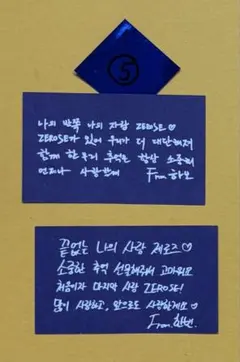 나의 반쪽 나의 자랑 ZEROSE ♡
ZEROSE가 있어 우리가 더 대단해져
함께 한 우리 추억은 항상 소중해
언제나 사랑할게 From 하오
끝없는 나의 사랑 제로즈 ♡
소중한 추억 선물해줘서 고마워요
처음이자 마지막 사랑 ZEROSE!
많이 사랑하고, 앞으로도 사랑할게요 ♡
From. 한빈.